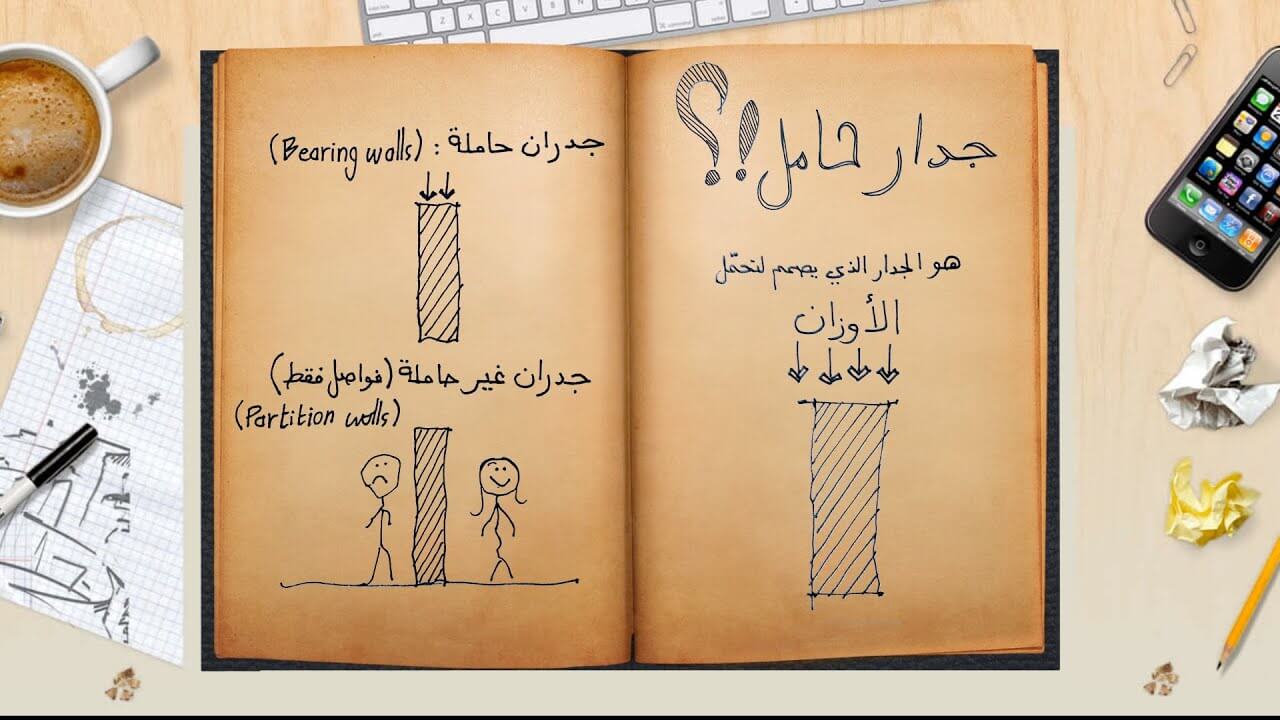 جدار حامل!؟
هو الجدار الذي يصمم لتحمّل
الأوزان
جدران حاملة : (Bearing walls)
جدران غير حاملة (فواصل فقط)
(Partition walls)